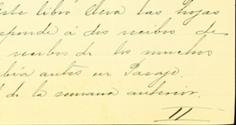 este libro lleva las hojas
esponde á dos recibos de
recibos de los muchos
bía antes en Pasajo
l de la semana anterior.
II